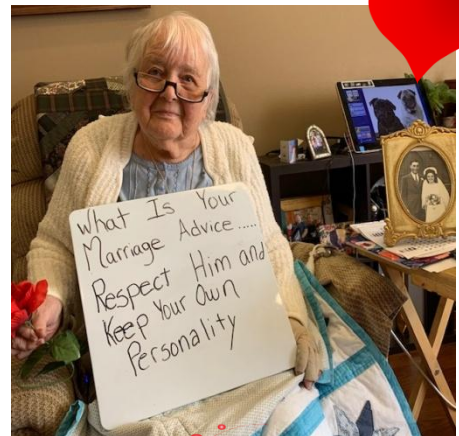 What Is Your
Marriage Advice.....
Respect Him and
Keep Your Own
Personality